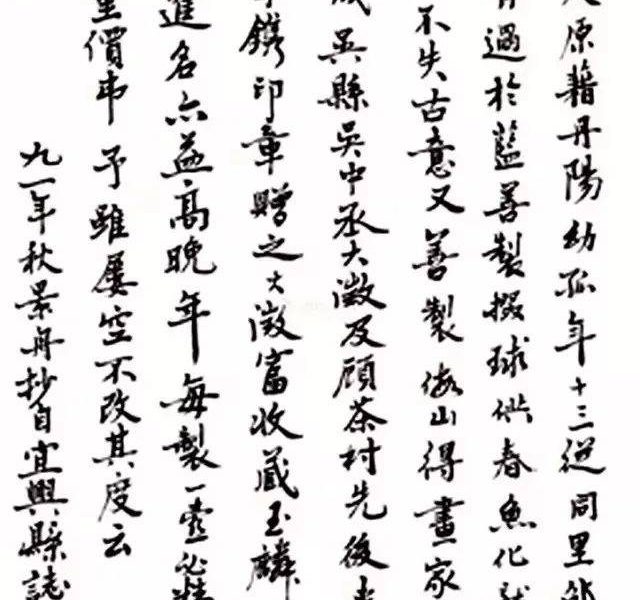 原籍丹陽幼孤年十三從同里邵
過於藍善製掇球供春魚化
不失古意又善製仿山得畫家
吳縣吳中丞大澂及顧茶村先後
鐫印章贈之大澂富收藏玉麟
進名亦益高晚年每製一壺必精
價弗予雖屢空不改其度云
九一年秋景舟抄自宜興縣誌